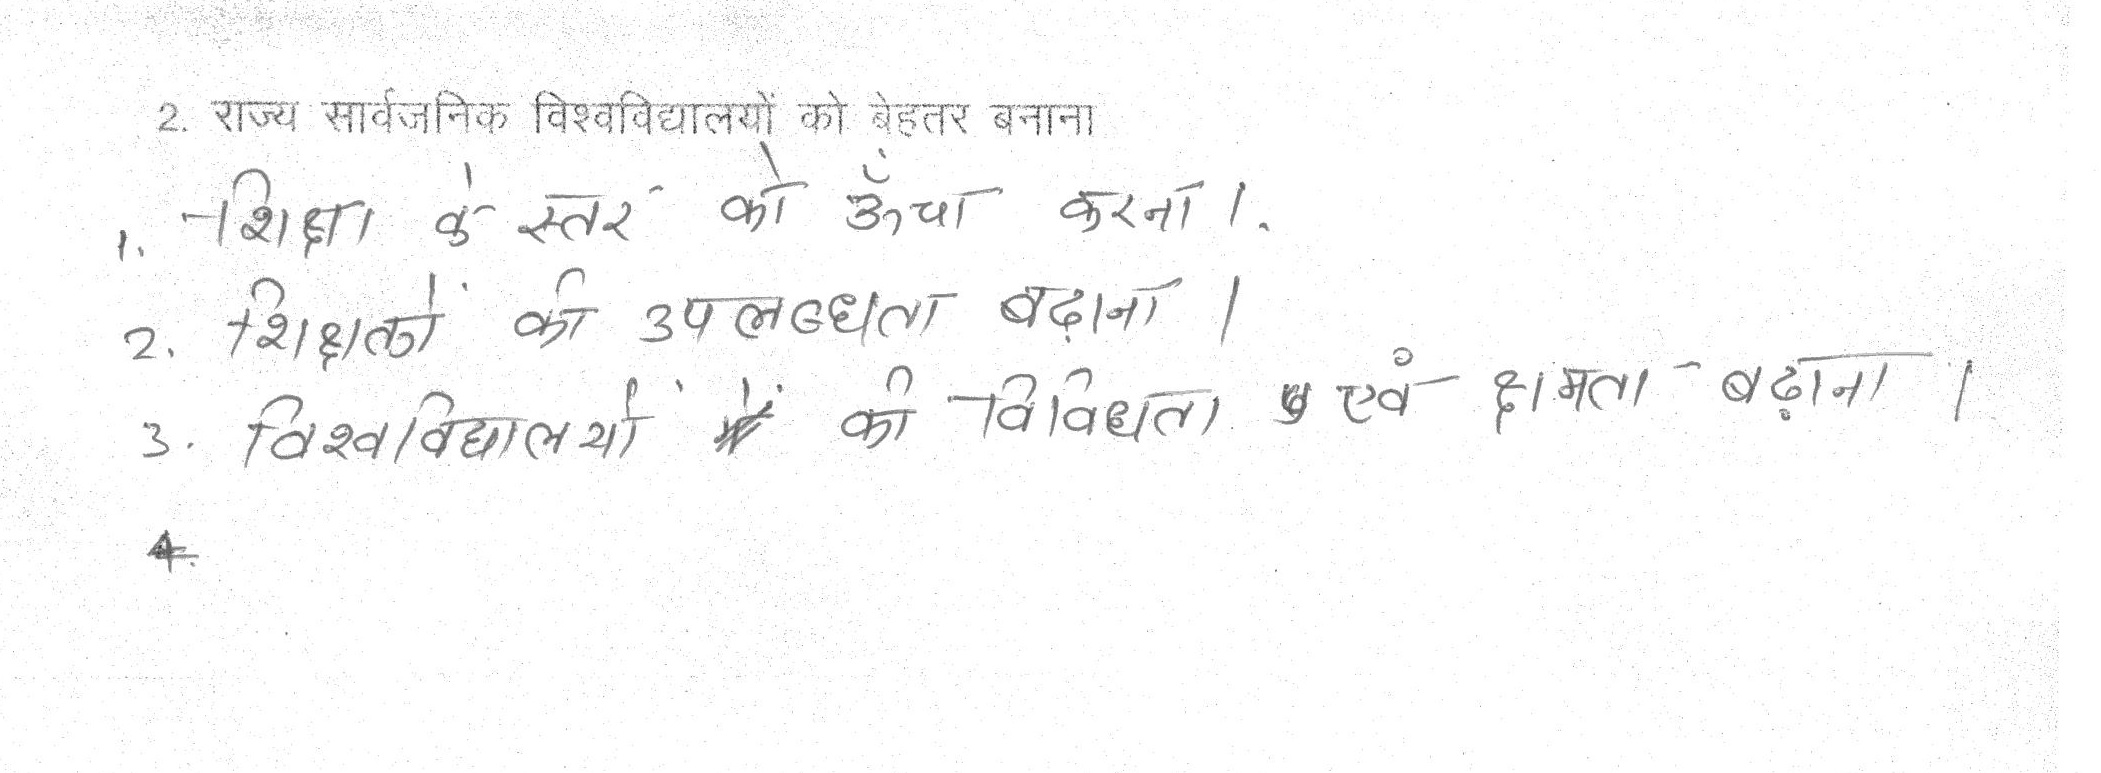 2. राज्य सार्वजनिक विश्वविद्यालयों को बेहतर बनाना
1. शिक्षा के स्तर को ऊँचा करना।
2. शिक्षकों की उपलब्धता बढ़ाना।
3. विश्वविद्यालयों की विविधता एवं क्षमता बढ़ाना।
4.